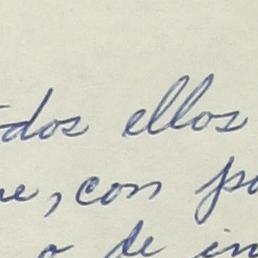 dos ellos
e, con p
o de in